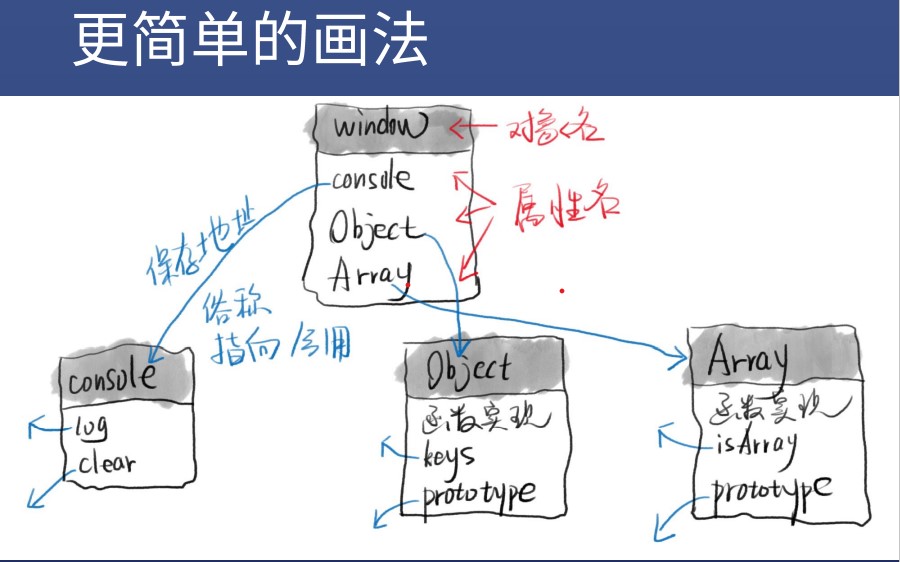 更简单的画法
window
对象名
console
属性名
Object
Array
保存地址
俗称
指向/引用
console
log
clear
Object
函数实现
keys
prototype
Array
函数实现
isArray
prototype